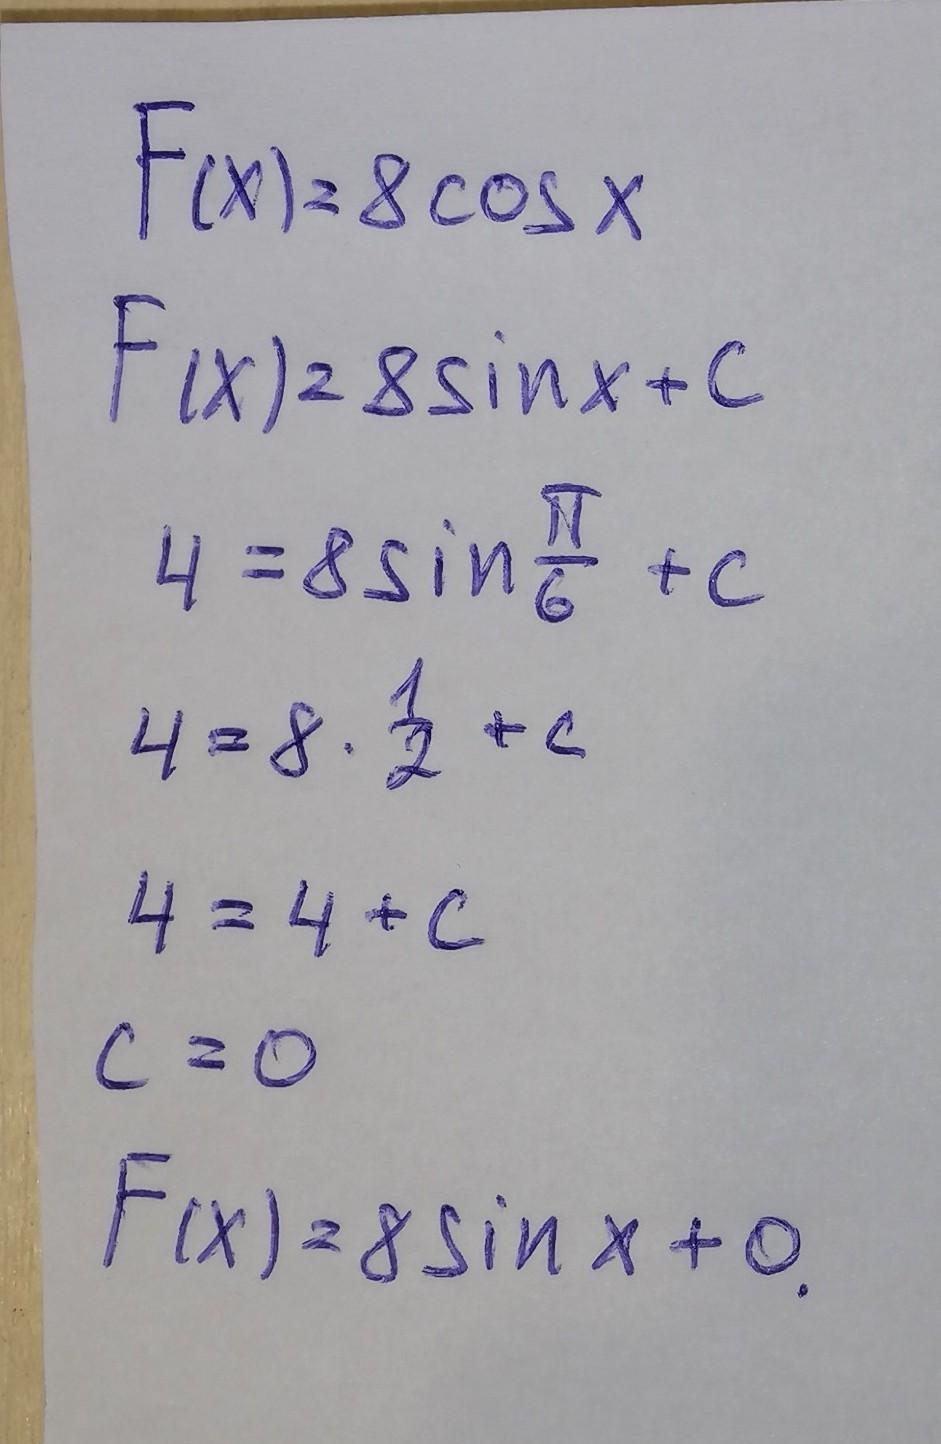 F(x)=8cosx
F(x)=8sinx+C
4=8sin π/6 +C
4=8·1/2+C
4=4+C
C=0
F(x)=8sinx+0.